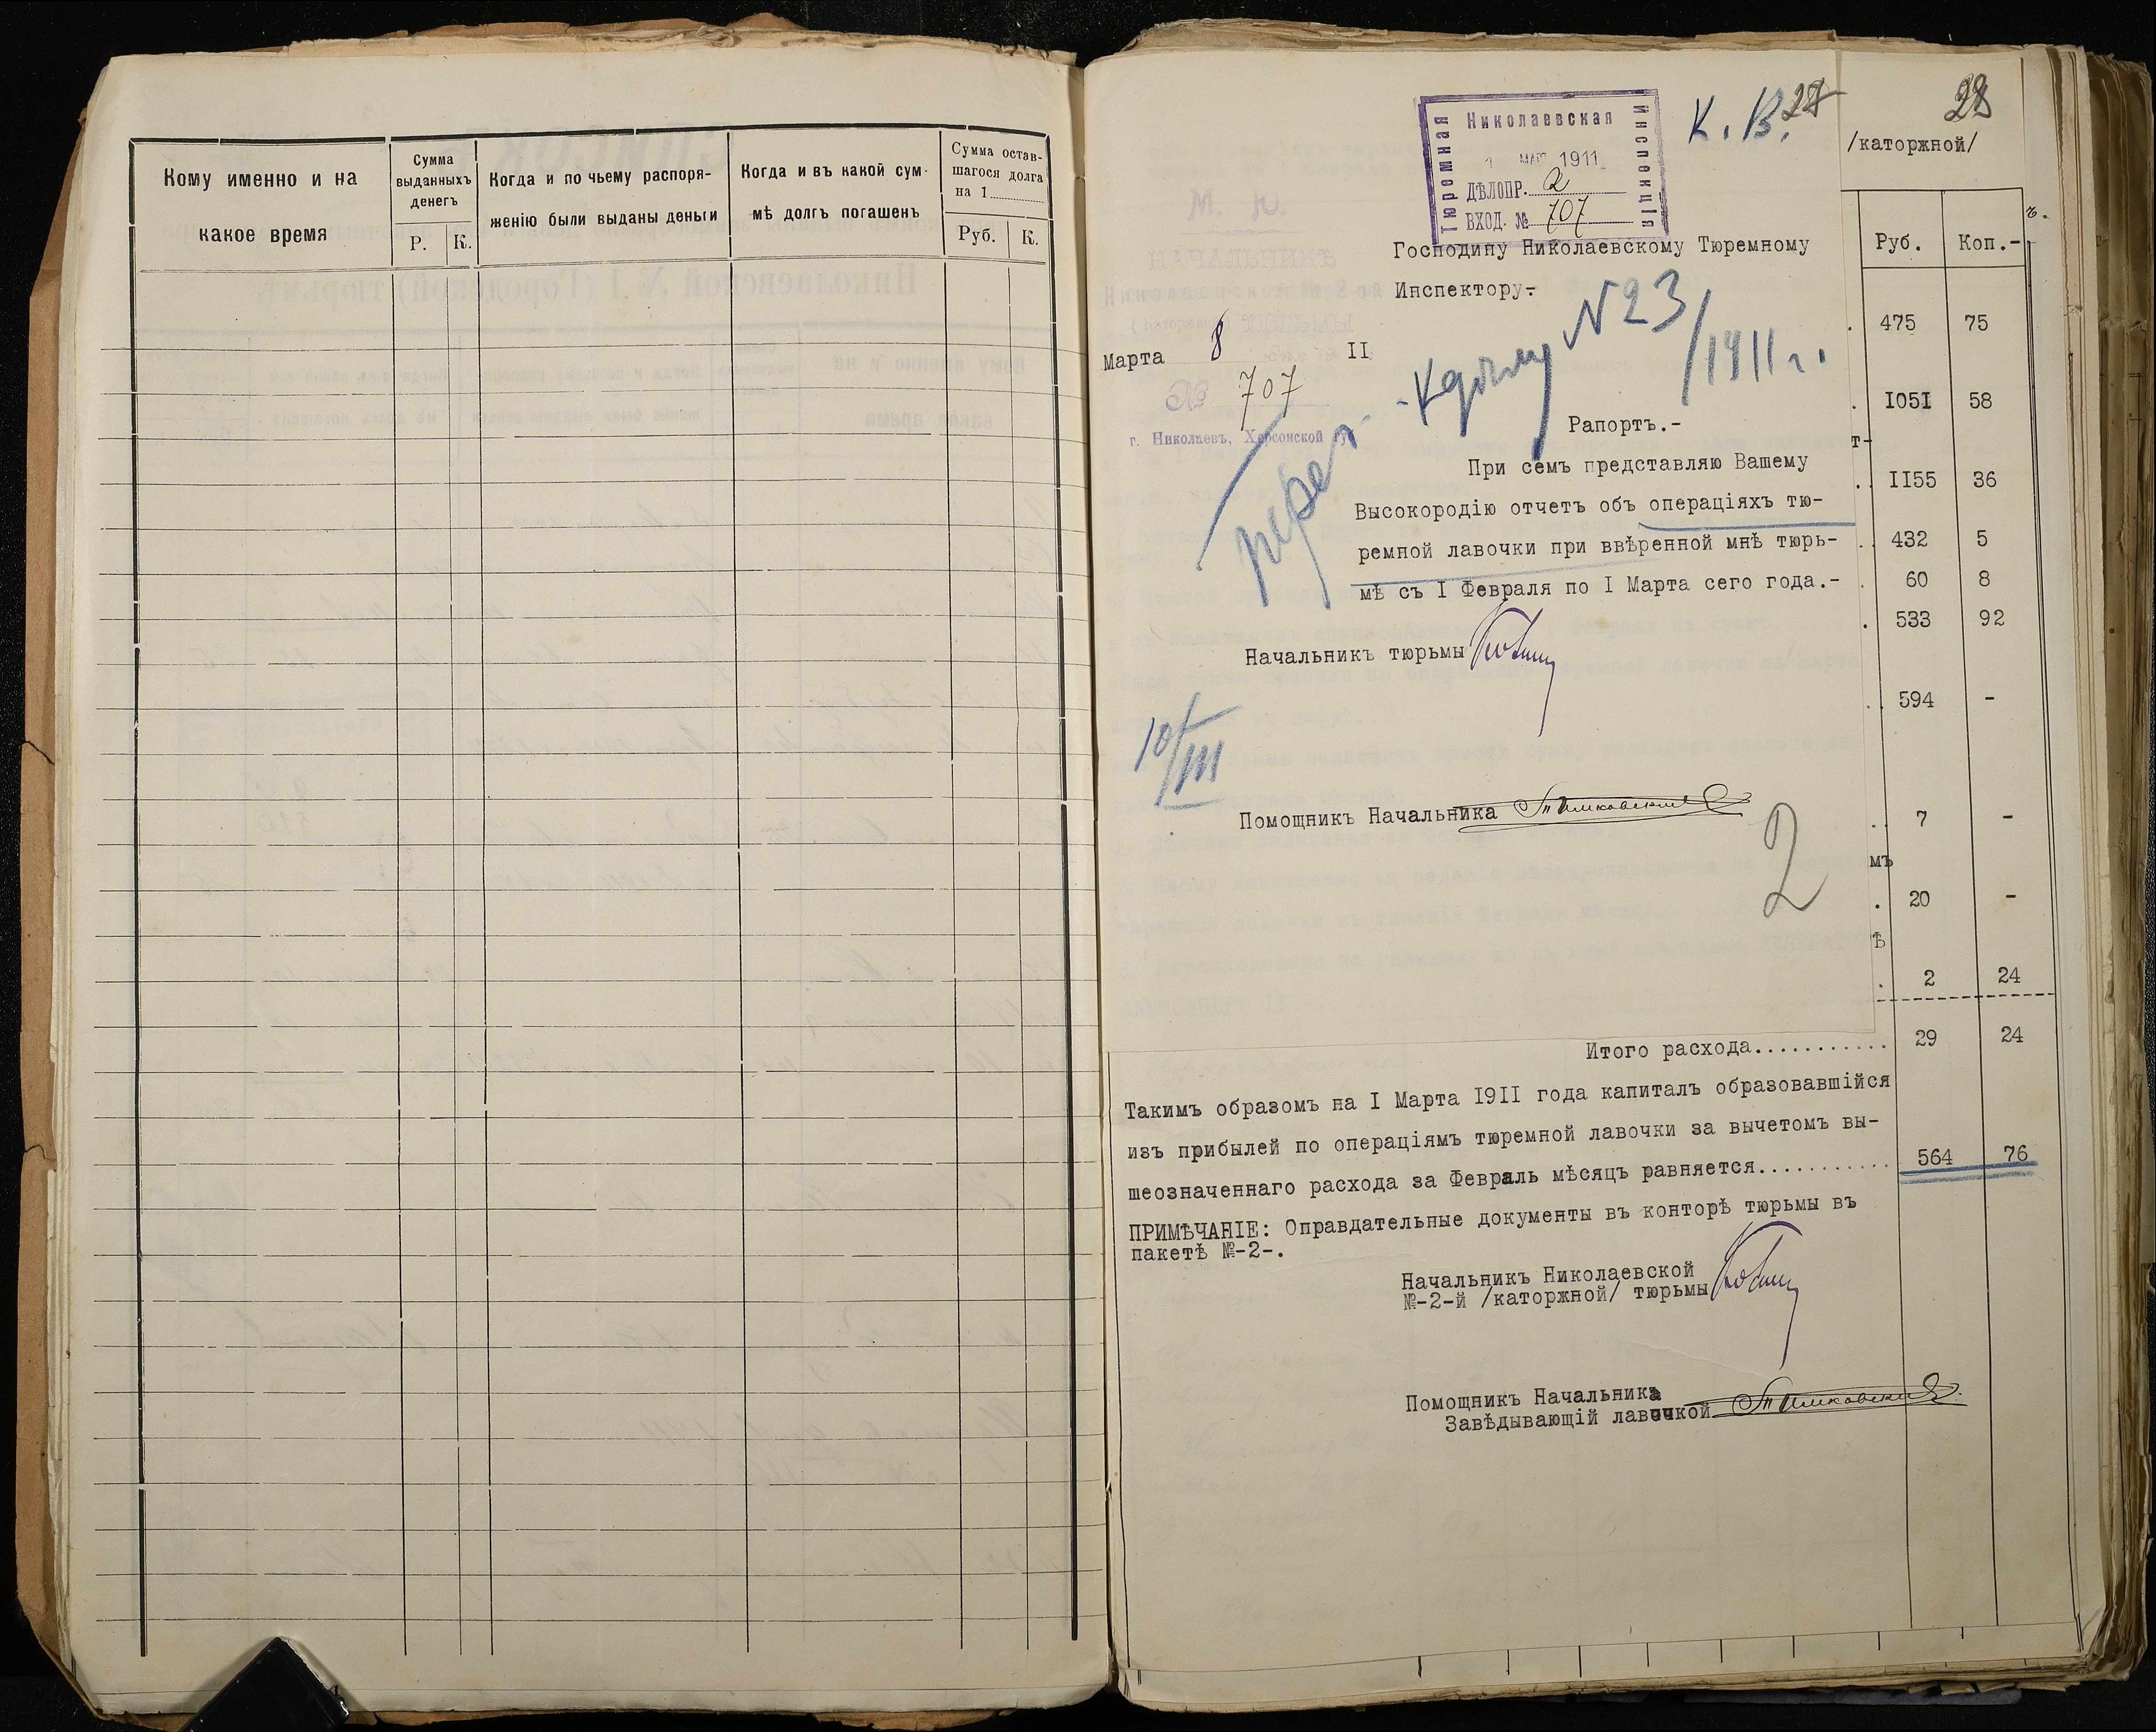 Кому именно и на
какое время
Сумма
выданныхъ
денегъ
Р. К.
Когда и по чьему распоря-
женію были выданы деньги
Когда и въ какой сум-
мѣ долгъ погашенъ
Сумма остав-
шагося долга
на 1
Руб. К.
28
/каторжной/
К. В.
Николаевская
Тюремная
Инспекція
МАР 1911
ДѢЛОПР. 2
ВХОД. № 707
Господину Николаевскому Тюремному
Инспектору.-
Марта 8 II
№ 707
г. Николаевъ, Херсонской губ.
К дѣлу № 23/1911 г.
Рапортъ.-
При семъ представляю Вашему
Высокородію отчетъ объ операціяхъ тю-
ремной лавочки при ввѣренной мнѣ тюрь-
мѣ съ I Февраля по I Марта сего года.-
Начальникъ тюрьмы
10/III
Помощникъ Начальника
2
Руб. Коп.-
475 75
I05I 58
т-
II55 36
432 5
60 8
533 92
594 -
7 -
мъ
20 -
ѣ
2 24
Итого расхода........... 29 24
Такимъ образомъ на I Марта I9II года капиталъ образовавшійся
изъ прибылей по операціямъ тюремной лавочки за вычетомъ вы-
шеозначеннаго расхода за Февраль мѣсяцъ равняется........... 564 76
ПРИМѢЧАНІЕ: Оправдательные документы въ конторѣ тюрьмы въ
пакетѣ №-2-.
Начальникъ Николаевской
№-2-й /каторжной/ тюрьмы
Помощникъ Начальника
Завѣдывающій лавочкой